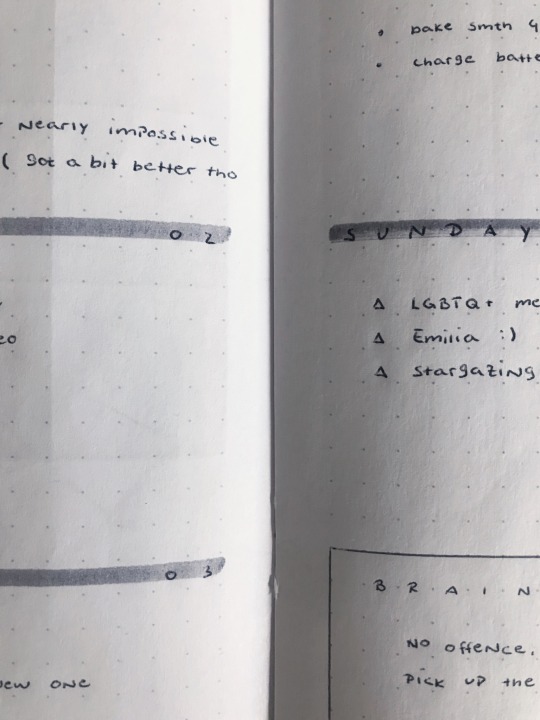 Nearly impossible
( got a bit better tho
02
03
new one
bake smth
charge
SUNDAY
Δ LGBTQ+
Δ Emilia :)
Δ Stargazing
BRAIN
No offence,
Pick up the